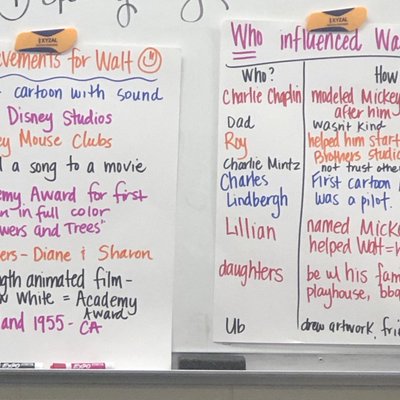 EXYZAL
evements for Walt
cartoon with sound
Disney Studios
ey Mouse Clubs
a song to a movie
emy Award for first
in full color
wers and Trees"
ers - Diane & Sharon
gth animated film -
White = Academy
Award
and 1955 - CA
EXPO
EXPO
XYZAL
Who influenced Wa
Who? How
Charlie Chaplin modeled Mickey
after him
Dad wasn't kind
Roy helped him start
Brothers studio
Charlie Mintz not trust other
Charles First cartoon
Lindbergh was a pilot.
Lillian named Mickey
helped Walt =
daughters be w/ his fam
playhouse, bbq
Ub drew artwork, frie